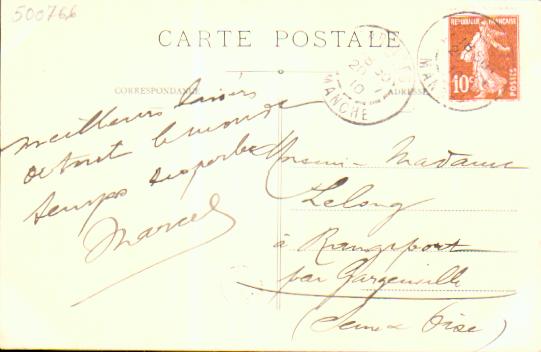 500766
CARTE POSTALE
CORRESPONDANCE
ADRESSE
RÉPUBLIQUE FRANÇAISE
10c
POSTES
MANCHE
20
10
Meilleurs baisers
de tout le monde
temps superbe
Marcel
Monsieur Madame
Lelong
à Rangiport
par Gargenville
(Seine & Oise)